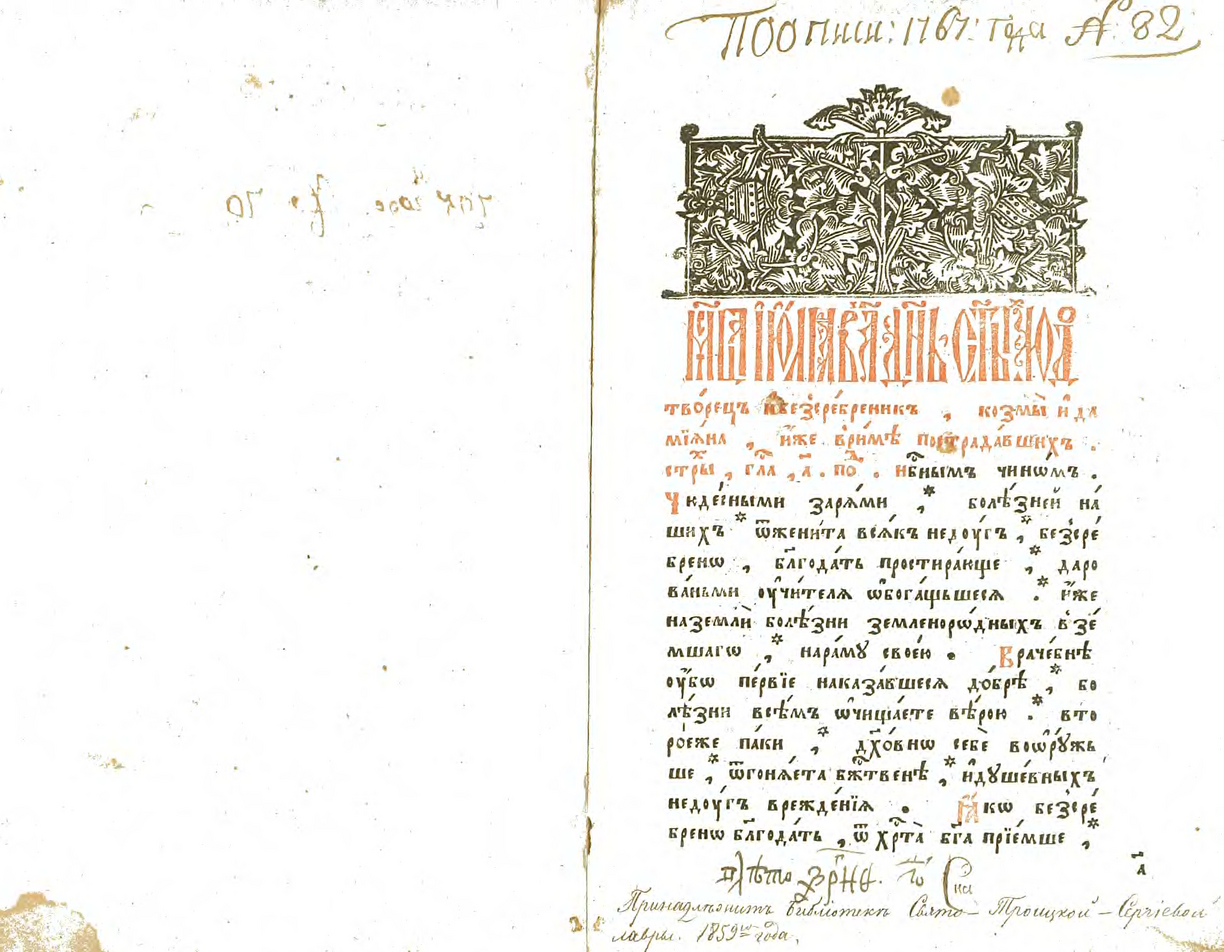 По описи: 1767: года № 82
мⷭ҇ца і҆ю́лѧ въ а҃ д҃нь ст҃ы́хъ чюдо
тво́рецъ и҆ беꙁсре́бреникъ , коꙁмы̀ и҆ да
мїѧ́на , и҆́же в ри́мѣ пострада́вшихъ .
стⷯры , гла , а҃ . поⷣ . нбⷭ҇нымъ чино́мъ .
Чюде́сными ꙁарѧ́ми , * болѣ́ꙁней на́
шихъ * ѿжени́та всѧ́къ недоу́гъ , * беꙁсре́
брено , бл҃года́ть простира́юще , * даро
ва́ньми оу҆чи́телѧ ѡ҆богащьшесѧ . * и҆́же
на ꙁемлѝ болѣ́ꙁни ꙁемленоро́дныхъ вꙁе́
мшаго , * на ра́му свое́ю . Враче́бнѣ
оу҆́бо пе́рвїе накаꙁа́вшесѧ до́брѣ , * бо
лѣ́ꙁни всѣ́мъ ѡ҆чища́ете вѣ́рою . * вто
ро́еже па́ки , * дх҃о́вно себѐ воѡрꙋжь
ше , * ѿгонѧ́ета бж҃твенѣ , * и҆ дꙋше́вныхъ
недоу́гъ врежде́нїѧ . Ꙗ҆́ко беꙁсре́
брено бл҃года́ть , ѿ хрⷭ҇та̀ бг҃а прїе́мше , *
а҃
Принадлежитъ библіотекѣ Свято-Троицкой-Сергіевой
лавры. 1859го года.